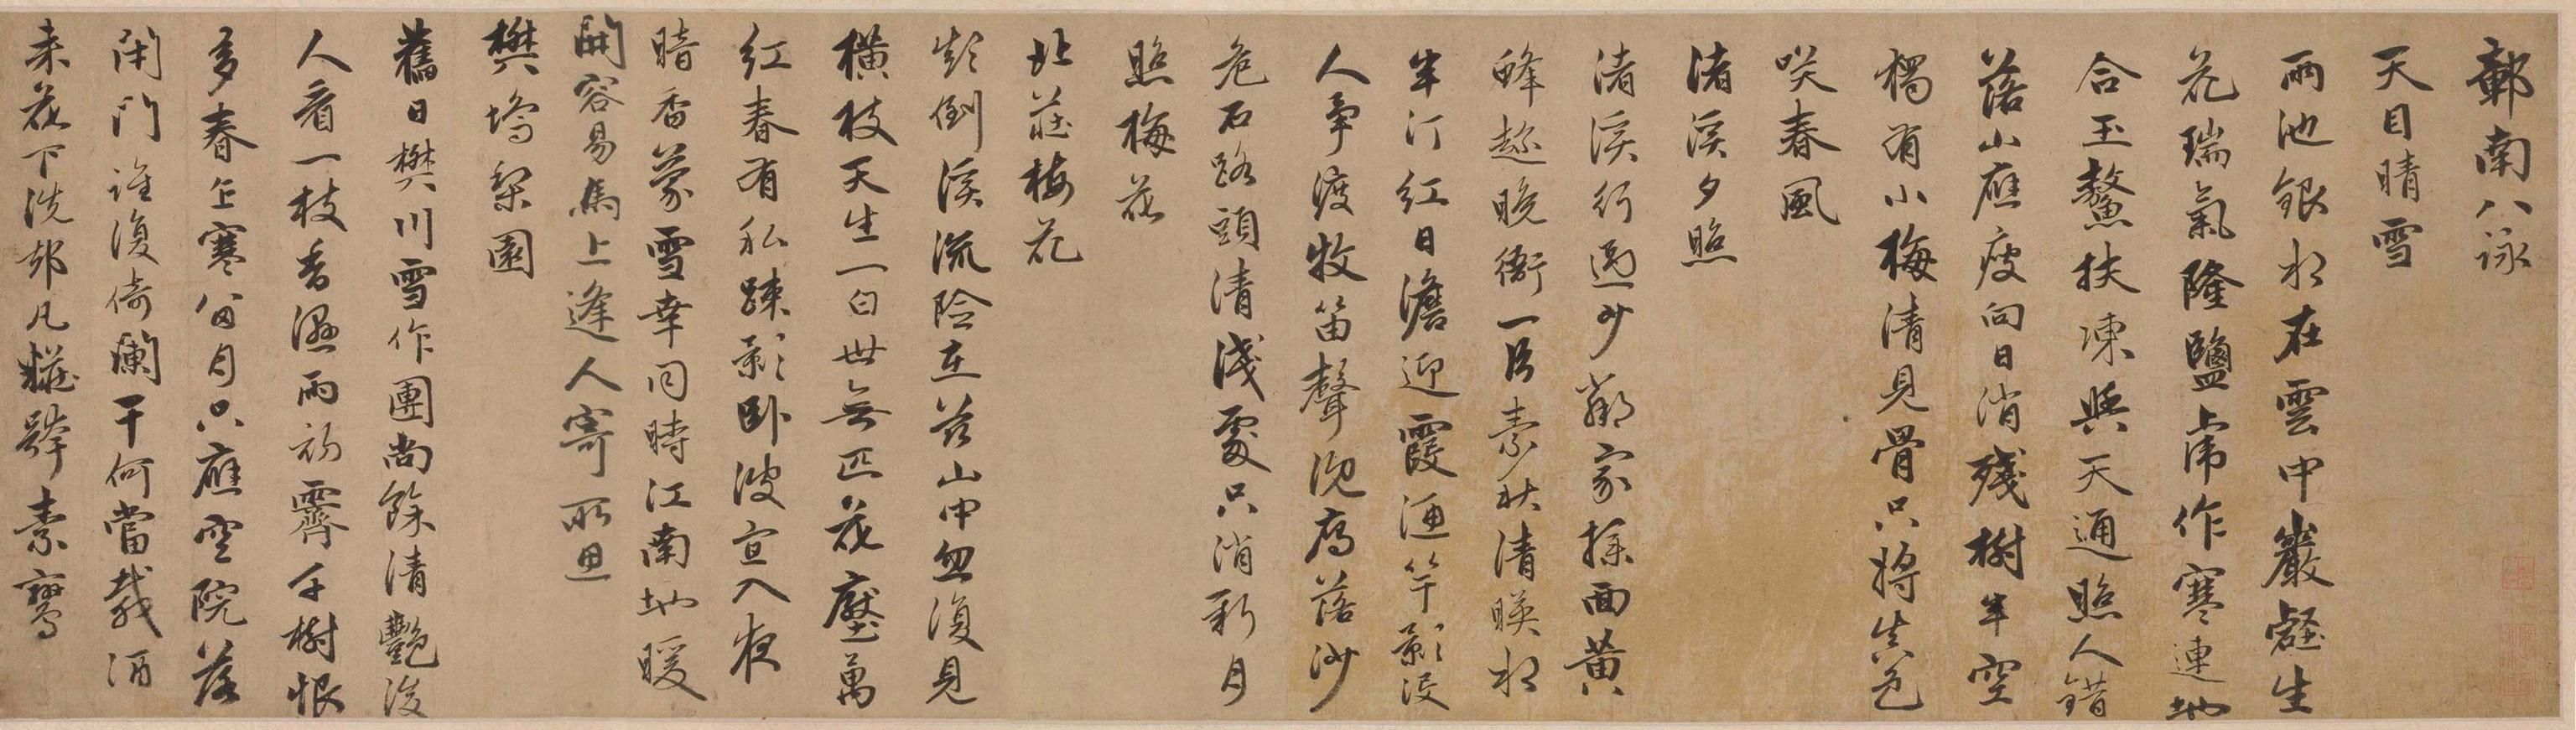 鄣南八詠
天目晴雪
雨池銀水在雲中巖壑生
花瑞氣隆鹽虎作寒連地
合玉鰲扶凍與天通照人錯
落山應瘦向日消殘樹半空
獨有小梅清見骨只將生色
笑春風
渚溪夕照
渚溪行過沙 家抹面黃
蜂趁晚衙一片素秋清暎水
半汀紅日澹迎霞漁竿影浸
人爭渡牧笛聲沈鴈落沙
危石路頭清淺處只消新月
照梅花
北莊梅花
欹倒溪流險在茲山中忽復見
橫枝天生一白世無匹花壓萬
紅春有私疎影臥波宜入夜
暗香蒙雪幸同時江南地暖
開容易馬上逢人寄所思
樊塢梨園
舊日樊川雪作團尚餘清艷後
人看一枝香濕雨初霽千樹恨
多春上寒 月只應空院落
閉門誰復倚闌干何當載酒
來花下洗却凡糚對素鸞